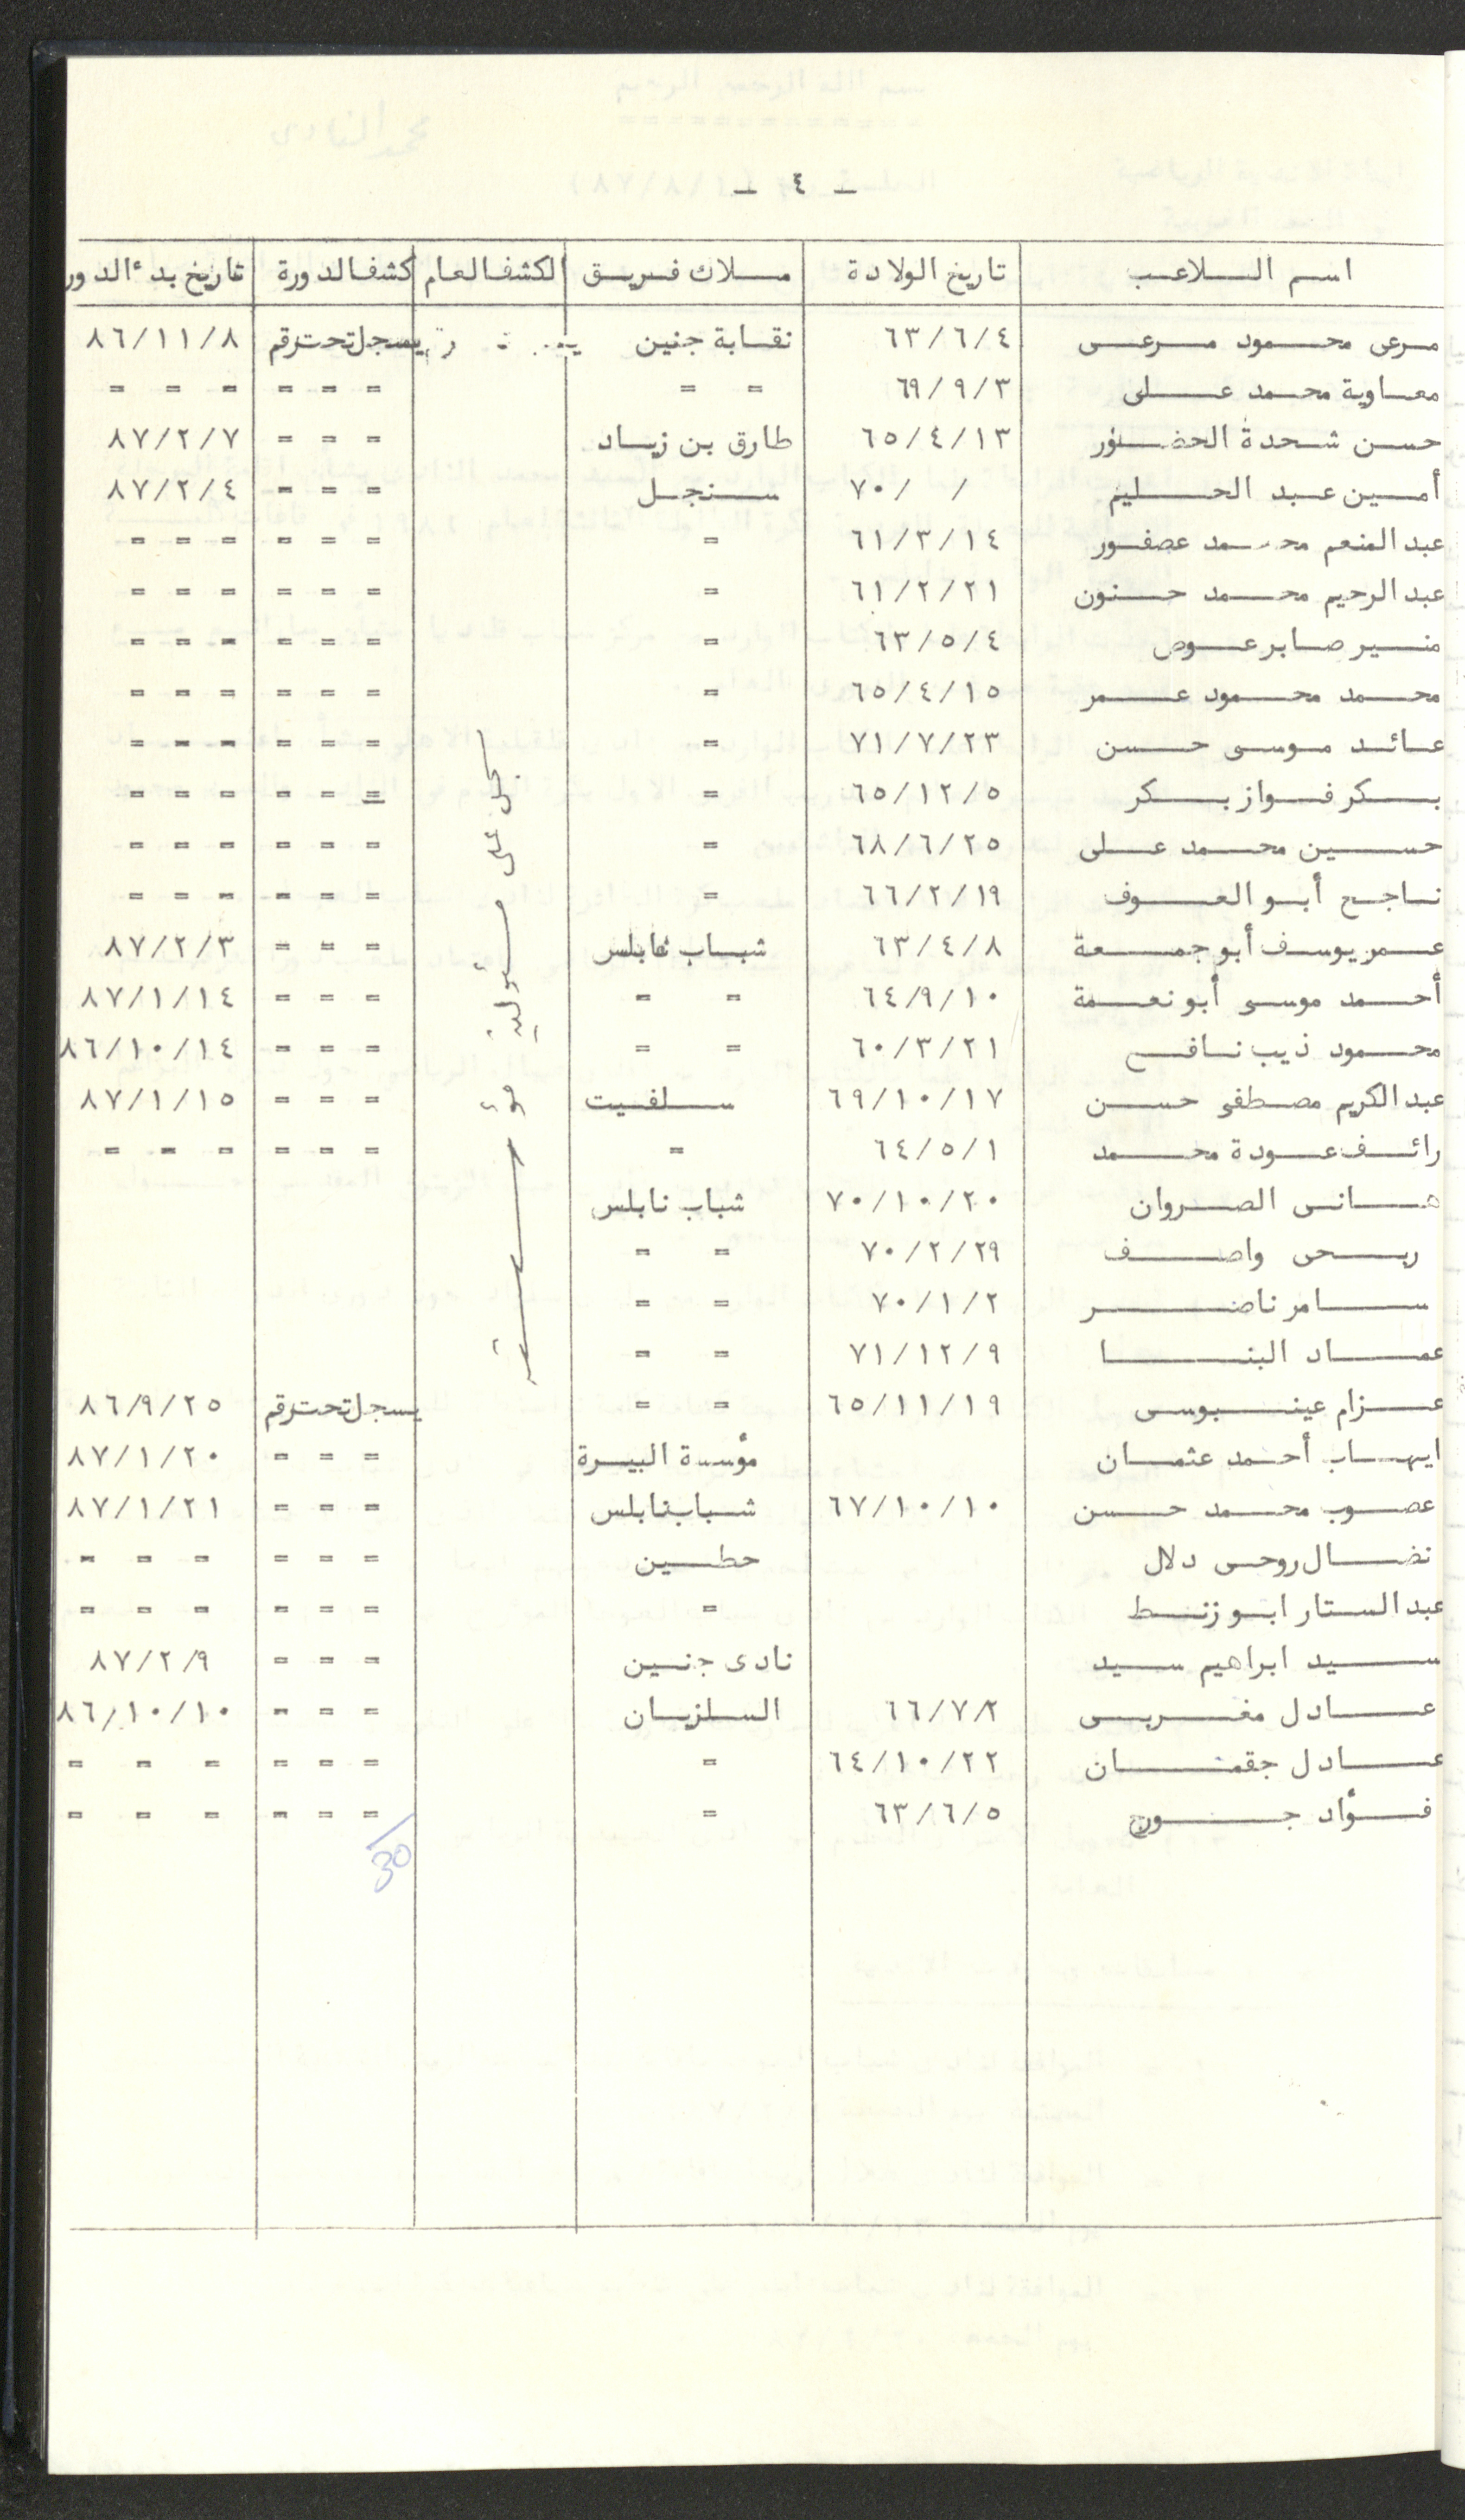 - ٤ -
اسم اللاعب تاريخ الولادة ملاك فريق الكشف العام كشف الدورة تاريخ بدء الدور
مرعى محمود مرعى ٦٣/٦/٤ نقابة جنين يسجل تحت رقم ٨٦/١١/٨
معاوية محمد على ٦٩/٩/٣ = = = = = = = =
حسن شحدة الخضور ٦٥/٤/١٣ طارق بن زياد = = = ٨٧/٢/٧
أمين عبد الحليم / /٧٠ سنجل = = = ٨٧/٢/٤
عبد المنعم محمد عصفور ٦١/٣/١٤ = = = = = = =
عبد الرحيم محمد حنون ٦١/٢/٢١ = = = = = = =
منير صابر عوض ٦٣/٥/٤ = = = = = = =
محمد محمود عمر ٦٥/٤/١٥ = = = = = = =
عائد موسى حسن ٧١/٧/٢٣ = = = = = = =
بكر فواز بكر ٦٥/١٢/٥ = = = = = = =
حسين محمد على ٦٨/٦/٢٥ = = = = = = =
ناجح أبو العوف ٦٦/٢/١٩ = = = = = = =
عمر يوسف أبو جمعة ٦٣/٤/٨ شباب نابلس = = = ٨٧/٢/٣
أحمد موسى أبو نعمة ٦٤/٩/١٠ = = = = = ٨٧/١/١٤
محمود ذيب نافع ٦٠/٣/٢١ = = = = = ٨٦/١٠/١٤
عبد الكريم مصطفى حسن ٦٩/١٠/١٧ سلفيت = = = ٨٧/١/١٥
رائف عودة محمد ٦٤/٥/١ = = = = = = =
هانى الصروان ٧٠/١٠/٢٠ شباب نابلس
ربحى واصف ٧٠/٢/٢٩ = =
سامر ناصر ٧٠/١/٢ = =
عماد البنا ٧١/١٢/٩ = =
سجل على مسئولية مؤسسة
عزام عينبوسى ٦٥/١١/١٩ = = يسجل تحت رقم ٨٦/٩/٢٥
ايهاب أحمد عثمان مؤسسة البيرة = = = ٨٧/١/٢٠
عصوب محمد حسن ٦٧/١٠/١٠ شباب نابلس = = = ٨٧/١/٢١
نضال روحى دلال حطين = = = = = =
عبد الستار ابو زنط = = = = = = =
سيد ابراهيم سيد نادى جنين = = = ٨٧/٢/٩
عادل مغربى ٦٦/٧/٢ السلزيان = = = ٨٦/١٠/١٠
عادل جقمان ٦٤/١٠/٢٢ = = = = = = =
فؤاد جورج ٦٣/٦/٥ = = = = = = =
30